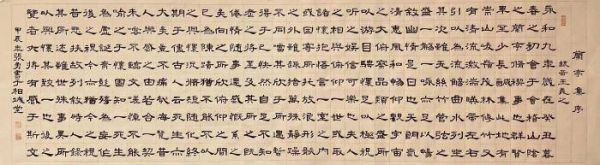 蘭亭集序
晉王羲之
永和九年歲在癸丑暮
春之初會于會稽山陰
之蘭亭修禊事也群賢
畢至少長咸集此地有
崇山峻嶺茂林修竹又
有清流激湍映帶左右
引以為流觴曲水列坐
其次雖無絲竹管弦之
盛一觴一詠亦足以暢
敘幽情是日也天朗氣
清惠風和暢仰觀宇宙
之大俯察品類之盛所
以遊目騁懷足以極視
聽之娛信可樂也夫人
之相與俯仰一世或取
諸懷抱悟言一室之內
或因寄所託放浪形骸
之外雖趣舍萬殊靜躁
不同當其欣于所遇暫
得于己快然自足不知
老之將至及其所之既
倦情隨事遷感慨係之
矣向之所欣俯仰之間
已為陳跡猶不能不以
之興懷況修短隨化終
期于盡古人云死生亦
大矣豈不痛哉每覽昔
人興感之由若合一契
未嘗不臨文嗟悼不能
喻之于懷固知一死生
為虛誕齊彭殤為妄作
後之視今亦猶今之視
昔悲夫故列敘時人錄
其所述雖世殊事異所
以興懷其致一也後之
覽者亦將有感于斯文
甲辰冬張勇書于柏城堂